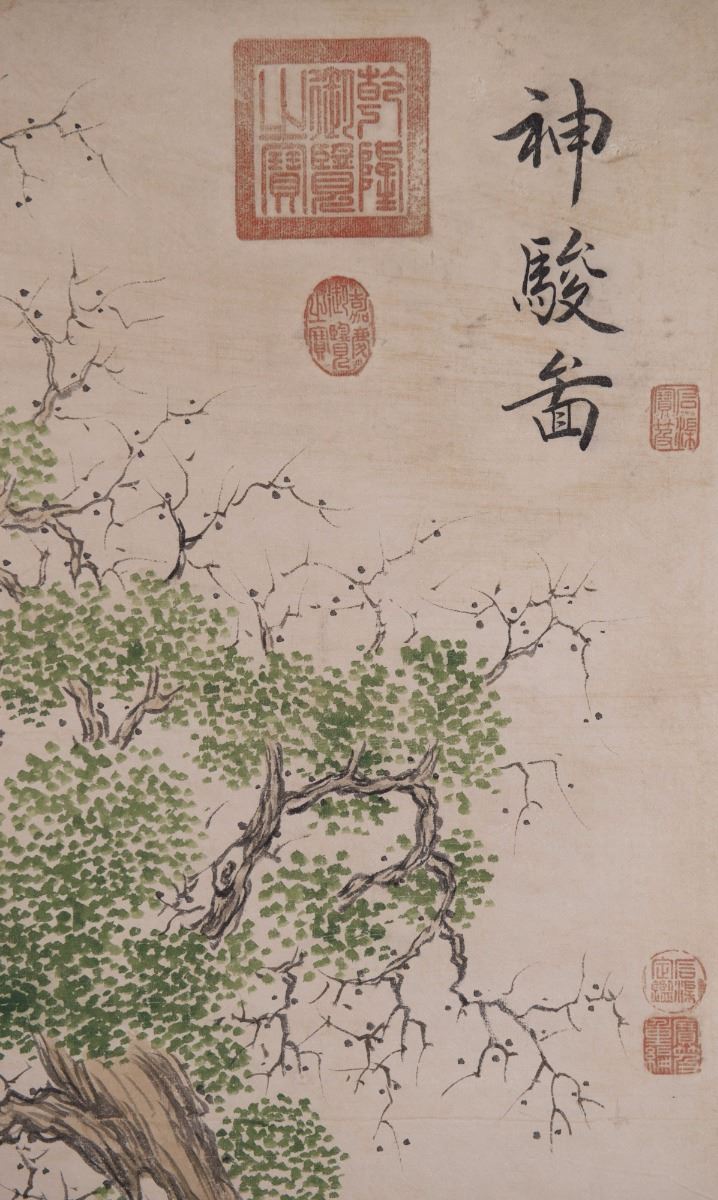 神駿圖
石渠寶笈
石渠定鑑
寶笈重編
乾隆御覽之寶
嘉慶御覽之寶